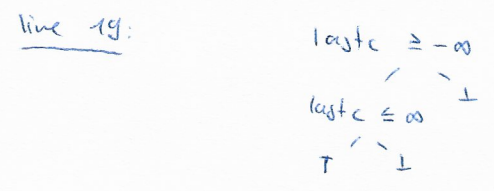 line 19: lastc ≥ -∞
⊥
lastc ≤ ∞
T ⊥